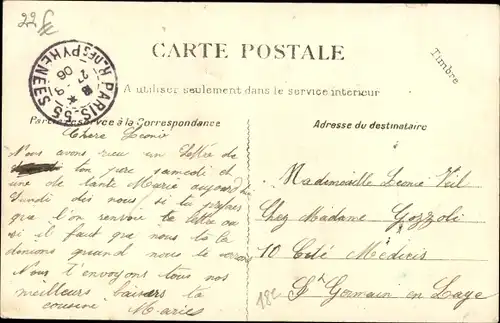 22f
PARIS - 55
R. DES PYRÉNÉES
27 - 8
06
CARTE POSTALE
Timbre
A utiliser seulement dans le service intérieur
Partie réservée à la Correspondance
Adresse du destinataire
Chère Léonie
Nous avons reçu un lettre de
ton père samedi et
une de tante Marie aujourd'hui
Lundi dis nous si tu préfères
que l'on renvoie ta lettre ou
si il faut que nous te la
donnions quand nous te verrons
Nous t'envoyons tous nos
meilleurs baisers ta
cousine Marie
Mademoiselle Léonie Veil
Chez Madame Gozzoli
10 Cité Médicis
St Germain en Laye
182